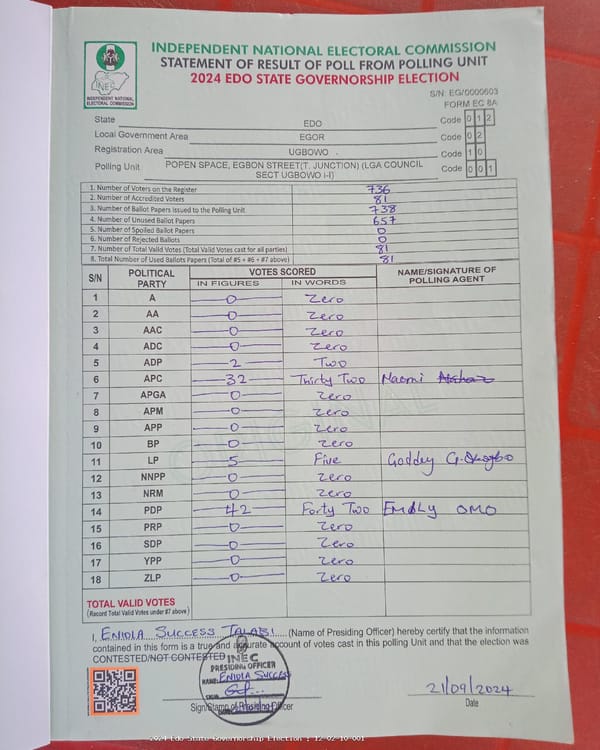 INDEPENDENT NATIONAL ELECTORAL COMMISSION
STATEMENT OF RESULT OF POLL FROM POLLING UNIT
2024 EDO STATE GOVERNORSHIP ELECTION
INEC
INDEPENDENT NATIONAL
ELECTORAL COMMISSION
S/N: EG/0000603
FORM EC 8A
State EDO Code 0 1 2
Local Government Area EGOR Code 0 2
Registration Area UGBOWO . Code 1 0
Polling Unit POPEN SPACE, EGBON STREET(T. JUNCTION) (LGA COUNCIL Code 0 0 1
SECT UGBOWO I-I)
1. Number of Voters on the Register 736
2. Number of Accredited Voters 81
3. Number of Ballot Papers issued to the Polling Unit 738
4. Number of Unused Ballot Papers 657
5. Number of Spoiled Ballot Papers 0
6. Number of Rejected Ballots 0
7. Number of Total Valid Votes (Total Valid Votes cast for all parties) 81
8. Total Number of Used Ballots Papers (Total of #5 + #6 + #7 above) 81
S/N POLITICAL PARTY VOTES SCORED NAME/SIGNATURE OF POLLING AGENT
IN FIGURES IN WORDS
1 A 0 Zero
2 AA 0 Zero
3 AAC 0 Zero
4 ADC 0 Zero
5 ADP 2 Two
6 APC 32 Thirty Two Naomi
7 APGA 0 Zero
8 APM 0 Zero
9 APP 0 Zero
10 BP 0 Zero
11 LP 5 Five Goddey G.
12 NNPP 0 Zero
13 NRM 0 Zero
14 PDP 42 Forty Two EMILY OMO
15 PRP 0 Zero
16 SDP 0 Zero
17 YPP 0 Zero
18 ZLP 0 Zero
TOTAL VALID VOTES
(Record Total Valid Votes under #7 above)
I, ENIOLA SUCCESS TALABI (Name of Presiding Officer) hereby certify that the information
contained in this form is a true and accurate account of votes cast in this polling Unit and that the election was
CONTESTED/NOT CONTESTED
INEC
PRESIDING OFFICER
NAME: ENIOLA SUCCESS
SIGN
21/09/2024
Sign/Stamp of Presiding Officer Date
2024 Edo State Governorship Election : 12-02-10-001